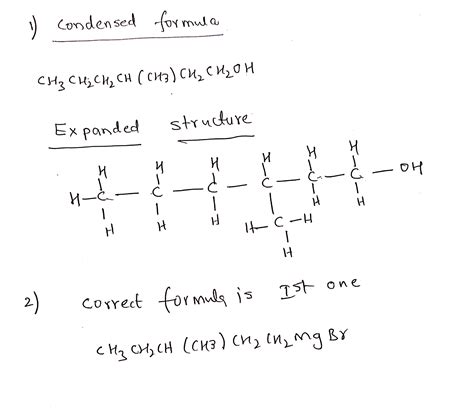 1) Condensed formula
CH3 CH2 CH2 CH (CH3) CH2 CH2 OH
Expanded structure
H H H H H H
H-C - C - C - C - C - C - OH
H H H H H
H-C-H
H
2) Correct formula is Ist one
CH3 CH2 CH (CH3) CH2 CH2 Mg Br